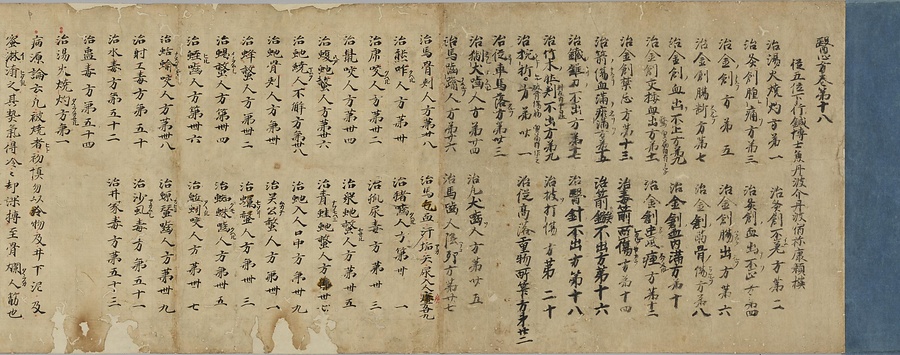 醫心方卷第十八
從五位下行鍼博士兼丹波介丹波宿祢康頼撰
治湯火燒灼方第一　治灸創不差方第二
治灸創腫痛方第三　治灸創血出不止方第四
治金創方第五　治金創腸出方第六
治金創腸斷方第七　治金創筋骨傷方第八
治金創血出不止方第九　治金創血內滿方第十
治金創交接血出方第十一　治金創中風痙方第十二
治金創禁忌方第十三　治毒箭所傷方第十四
治箭傷血漏瘀滿方第十五　治箭鏃不出方第十六
治鐵錐刀不出方第十七　治醫針不出方第十八
治竹木壯刺不出方第十九　治被打傷方第二十
治挽折方第廿一　治從高落重物所笮方第廿二
治從車馬落方第廿三
治猘犬嚙人方第廿四　治凡犬嚙人方第廿五
治馬嚙踏人方第廿六　治馬嚙人陰卵方第廿七
治馬骨刺人方第廿八　治馬毛血汗垢屎尿入人瘡方廿九
治熊咋人方第卅　治猪嚙人方第卅一
治虎咬人方第卅二　治狐尿毒方第卅三
治龍咬人方第卅四　治衆蛇螫人方第卅五
治蝮蛇螫人方第卅六　治青蛙蛇螫人方第卅七
治蛇繞人不解方第卅八　治蛇入人口中方第卅九
治蛇骨刺人方第卌　治吴公螫人方第卌一
治蜂螫人方第卌二　治蠆螫人方第卌三
治蝎螫人方第卌四　治蜘蛛嚙人方第卌五
治蛭嚙人方第卌六　治蚯蚓咬人方第卌七
治蛞蝓咬人方第卌八　治螈蠶嚙人方第卌九
治射工毒方第五十　治沙虱毒方第五十一
治水毒方第五十二　治井冢毒方第五十三
治蠱毒方第五十四
治湯火燒灼方第一
病源論云凡被燒者初慎勿以冷物及井下泥及
蜜淋漬之其熱氣得冷即却深搏至骨爛人筋也